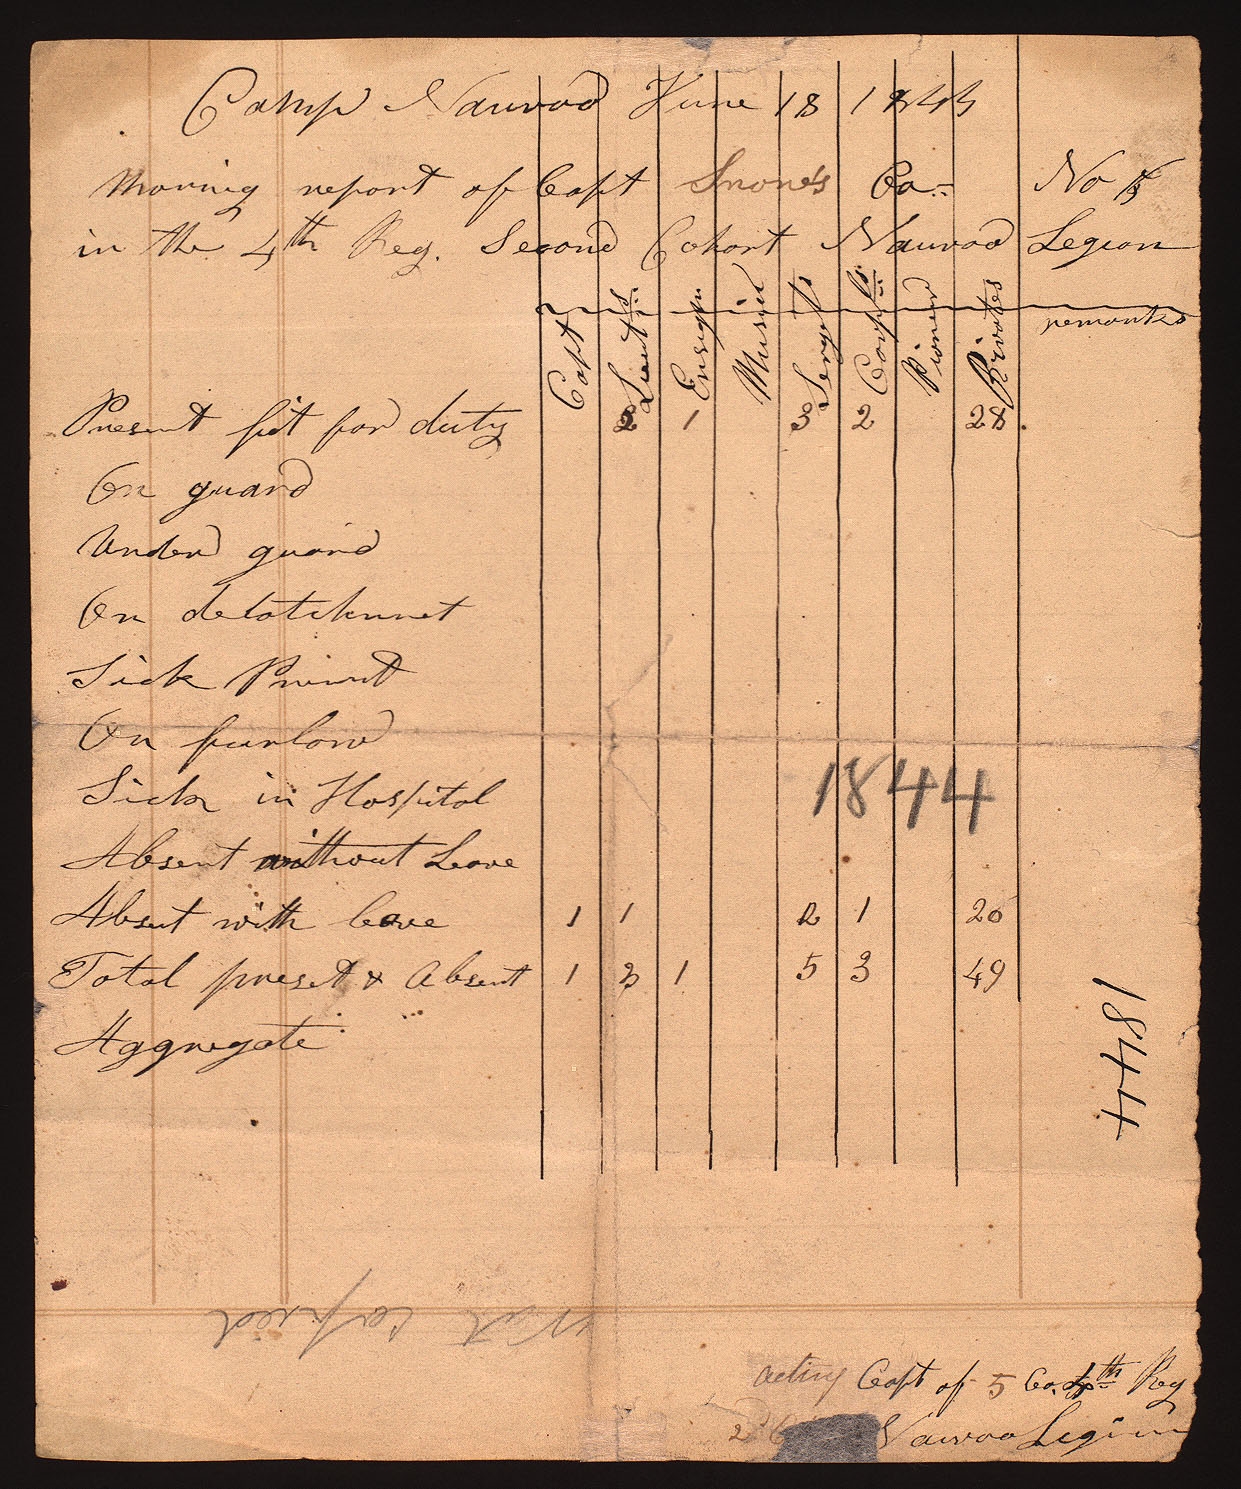 Camp Nauvoo June 18 1844
Morning report of Capt Snow's Co No
in the 4th Reg. Second Cohort Nauvoo Legion
Capt Lieuts Ensign Music Sergts Corpls Pioneer Privates remarks
Present fit for duty 2 1 3 2 28
On guard
Under guard
On detatchmet
Sick Present
On furlow
Sick in Hospital
1844
Absent without Leave
Absent with leave 1 1 2 1 20
Total preset & Absent 1 3 1 5 3 49
Aggregate
1844
Not copied
acting Capt of 5 Co. 4th Reg
2d Nauvoo Legion